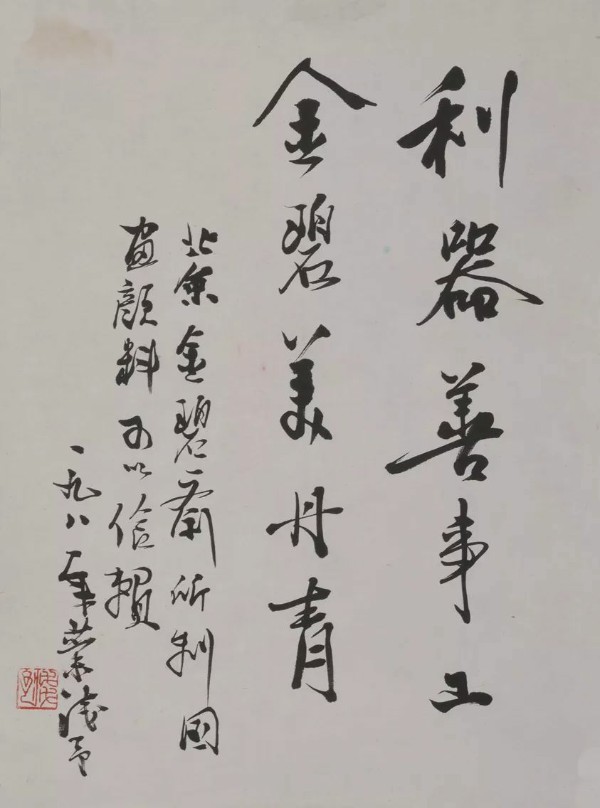 利器善事工
金碧美丹青
北京金碧斋所制国
画颜料可以信赖
一九八一年叶浅予